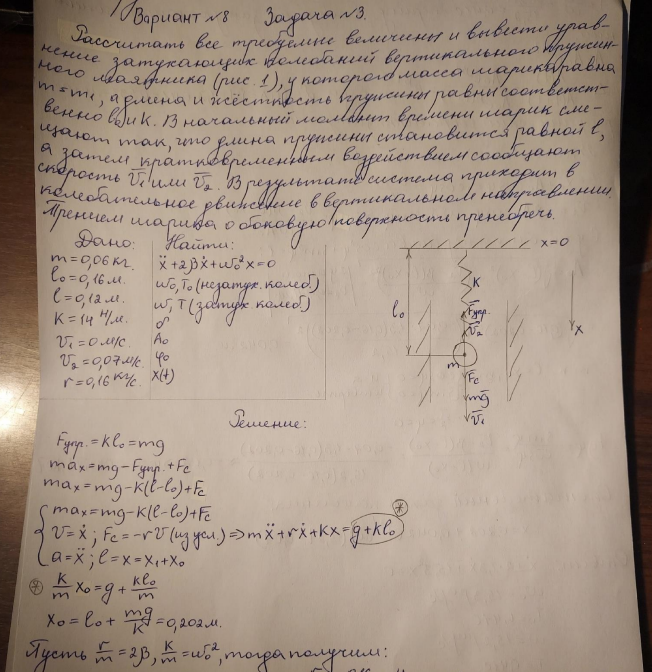 Вариант №8 Задача №3.
Рассчитать все требуемые величины и вывести урав-
нение затухающих колебаний вертикального пружин-
ного маятника (рис. 1), у которого масса шарика равна
m=m₁, а длина и жёсткость пружины равны соответст-
венно l₀ и K. В начальный момент времени шарик сме-
щают так, что длина пружины становится равной l,
а затем кратковременным воздействием сообщают
скорость V̄₁ или V̄₂. В результате система приходит в
колебательное движение в вертикальном направлении.
Трением шарика о боковую поверхность пренебречь.
Дано: Найти:
m=0,06 кг. ẍ+2βẋ+ω₀²x=0
l₀=0,16 м. ω₀, T₀ (незатух. колеб.)
l=0,12 м. ω, T (затух. колеб.)
K=14 Н/м. δ
V₁=0 м/с. A₀
V₂=0,07 м/с. φ₀
r=0,16 кг/с. x(t)
x=0
K
l₀
F̄упр.
V̄₂
m
F̄c
mḡ
V̄₁
x
Решение:
Fупр.=Kl₀=mg
maₓ=mg-Fупр.+Fc
maₓ=mg-K(l-l₀)+Fc
maₓ=mg-K(l-l₀)+Fc
V=ẋ; Fc=-rV (из усл.) => mẍ+rẋ+Kx=g+kl₀ *
a=ẍ; l=x=x₁+x₀
* K/m x₀=g+kl₀/m
x₀=l₀+mg/K=0,202 м.
Пусть r/m=2β, K/m=ω₀², тогда получим: